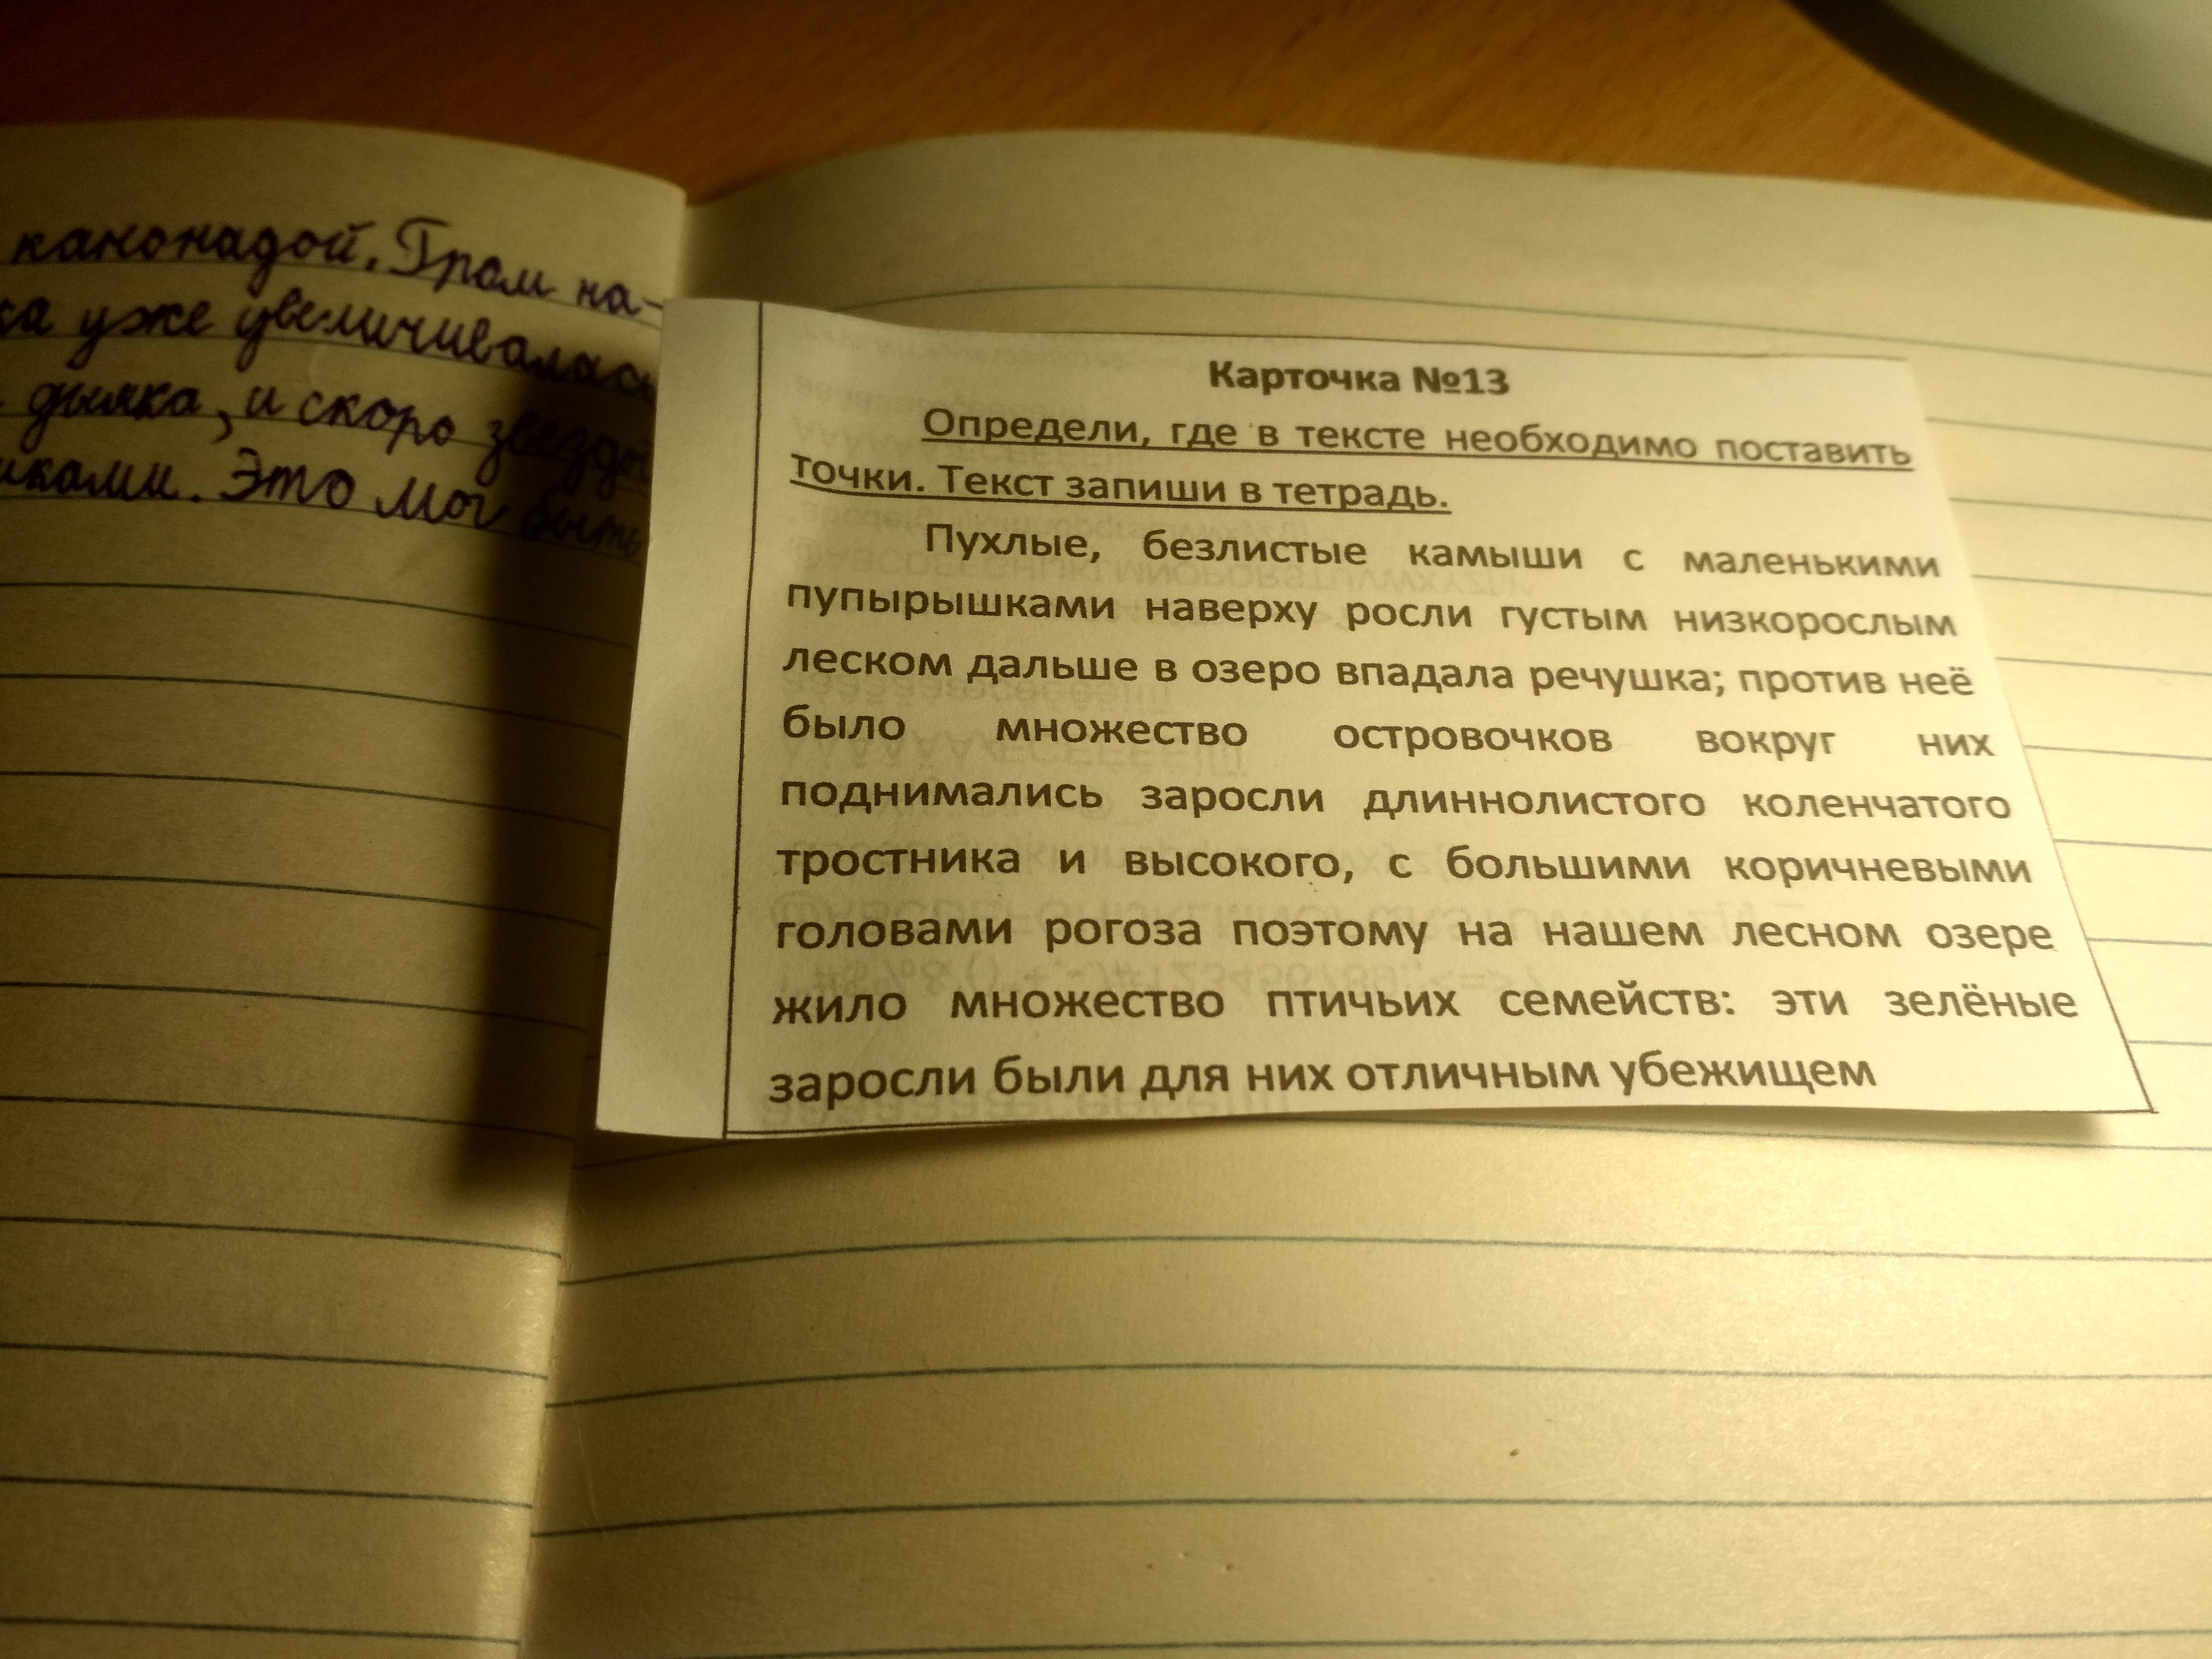 канонадой. Гром на-
уже увеличивалась
дымка, и скоро звездой
Это мог быть
Карточка №13
Определи, где в тексте необходимо поставить
точки. Текст запиши в тетрадь.
Пухлые, безлистые камыши с маленькими
пупырышками наверху росли густым низкорослым
леском дальше в озеро впадала речушка; против неё
было множество островочков вокруг них
поднимались заросли длиннолистого коленчатого
тростника и высокого, с большими коричневыми
головами рогоза поэтому на нашем лесном озере
жило множество птичьих семейств: эти зелёные
заросли были для них отличным убежищем